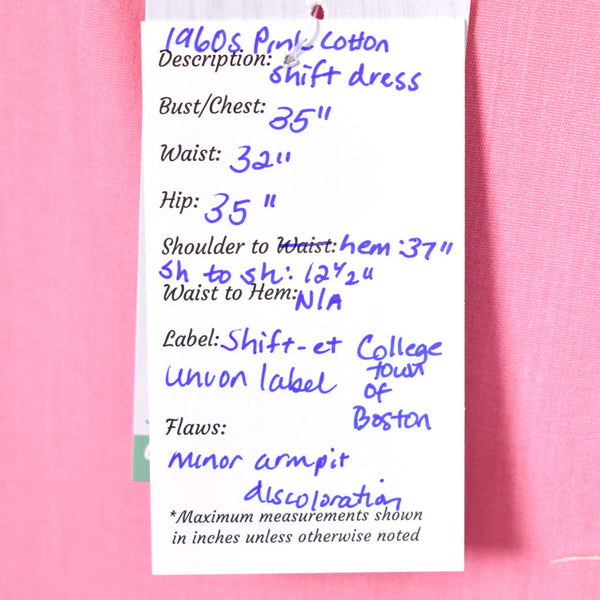 1960s Pink Cotton
Description: shift dress
Bust/Chest: 35"
Waist: 32"
Hip: 35"
Shoulder to Waist: hem: 37"
sh to sh: 12 1/2"
Waist to Hem: N/A
Label: Shift-et College
town
union label of
Boston
Flaws:
minor armpit
discoloration
*Maximum measurements shown
in inches unless otherwise noted